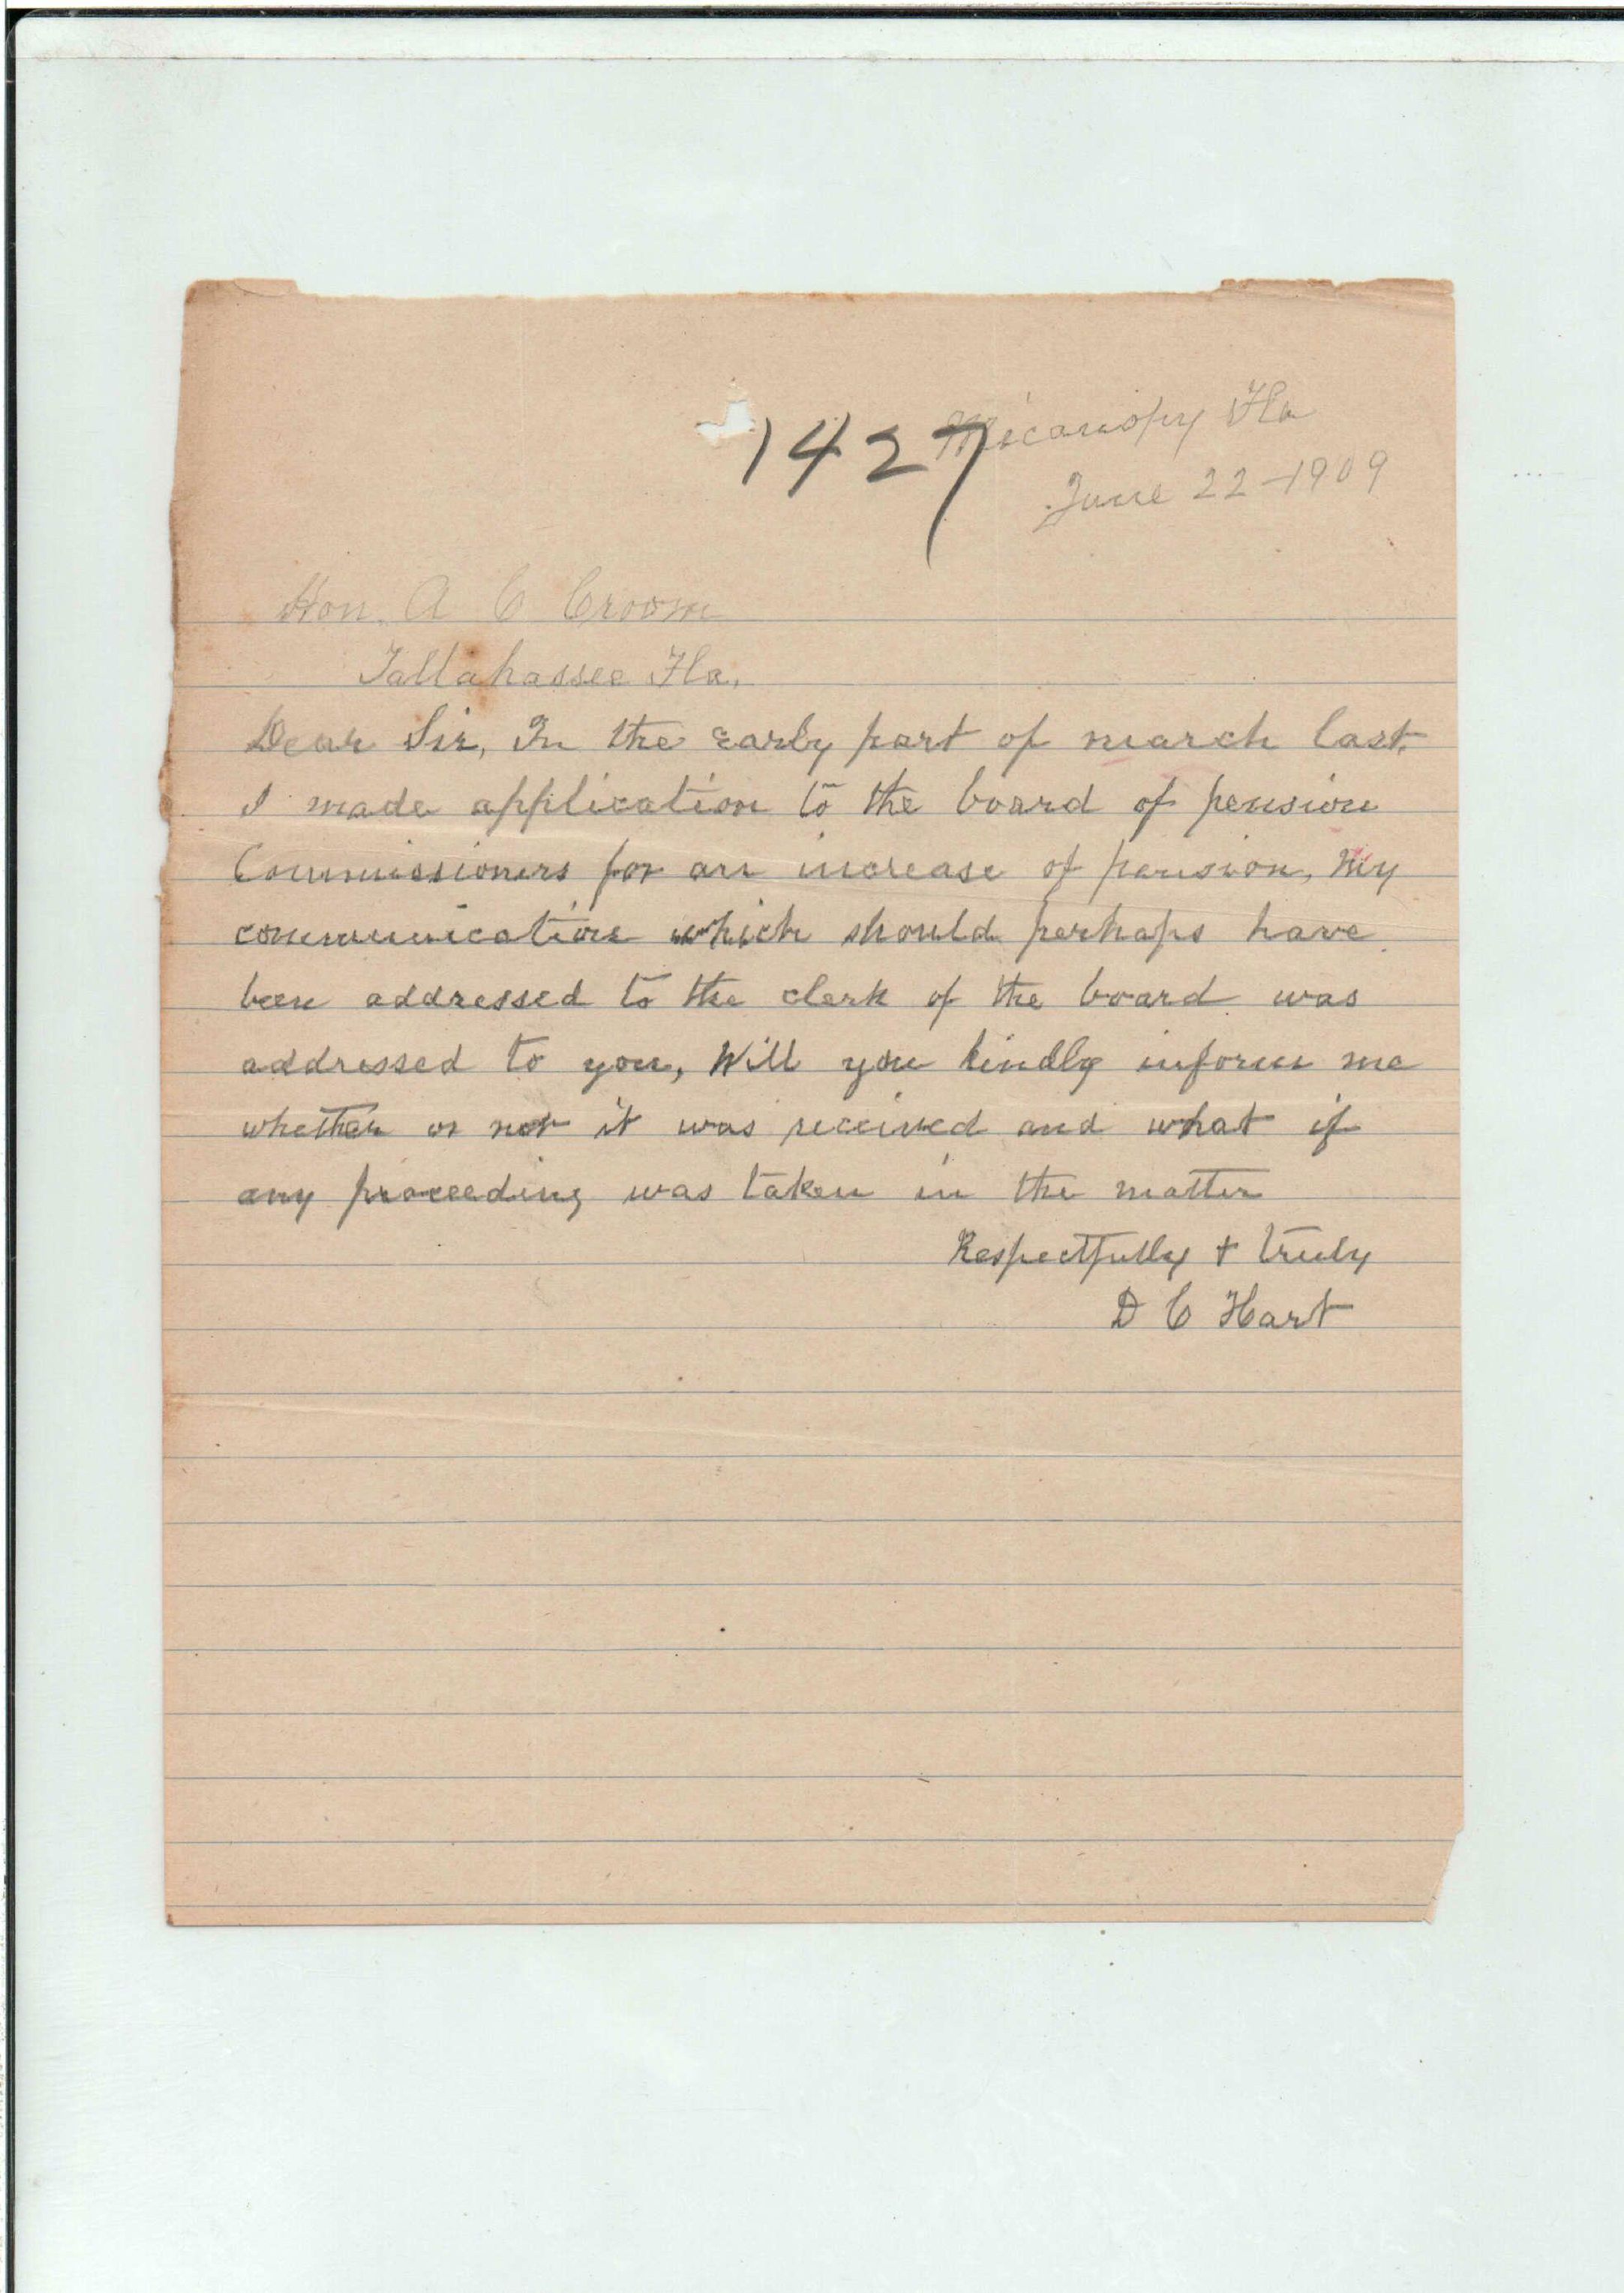 1427 Micanopy Fla
June 22-1909
Hon. A C Croom
Tallahassee Fla.
Dear Sir, In the early part of march last
I made application to the board of pension
Commissioners for an increase of pension, My
communication which should perhaps have
been addressed to the clerk of the board was
addressed to you, Will you kindly inform me
whether or not it was received and what if
any proceeding was taken in the matter
Respectfully + truly
D C Hart